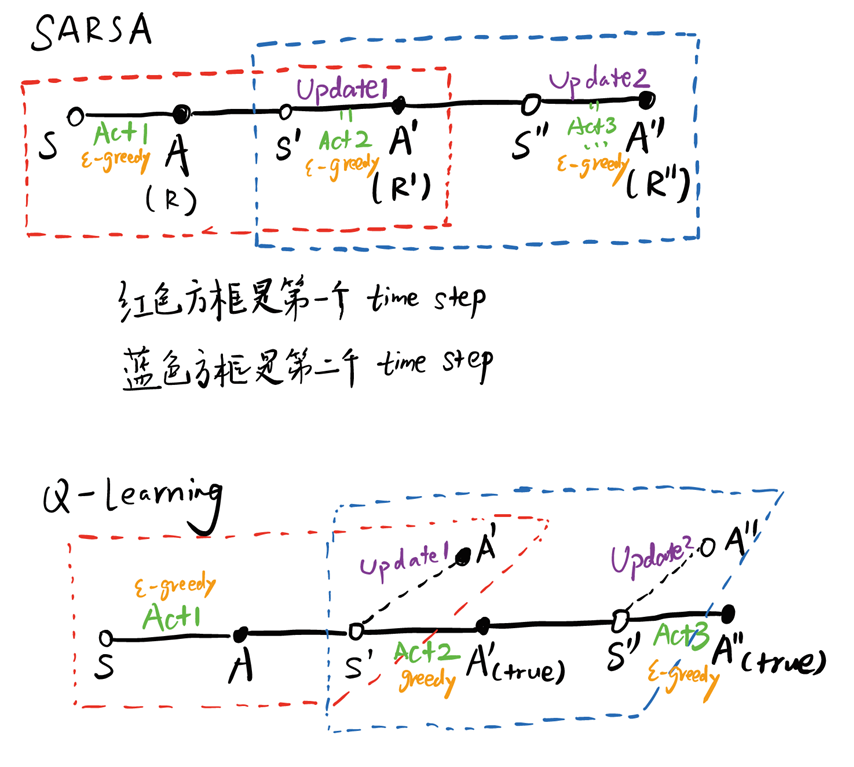 SARSA
Update1
Update2
S
Act1
ε-greedy
A
(R)
S'
Act2
ε-greedy
A'
(R')
S''
Act3
ε-greedy
A''
(R'')
红色方框是第一个 time step
蓝色方框是第二个 time step
Q-Learning
Update1
A'
Update2
A''
ε-greedy
Act1
S
A
S'
Act2
greedy
A'(true)
S''
Act3
ε-greedy
A''(true)